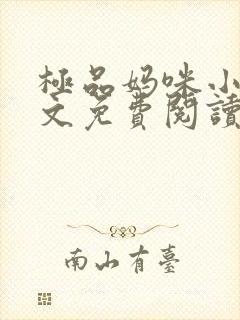 極品妈咪小
文免費閱讀
南山有臺